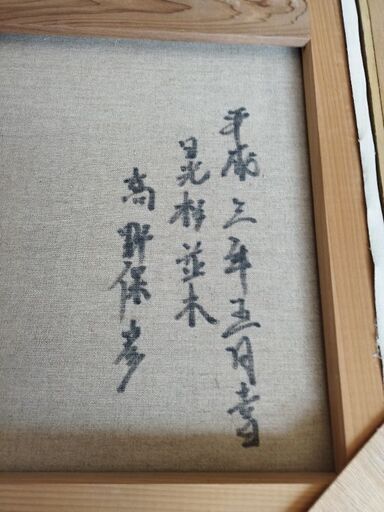 平成三年五月書
日光杉並木
高野保彦